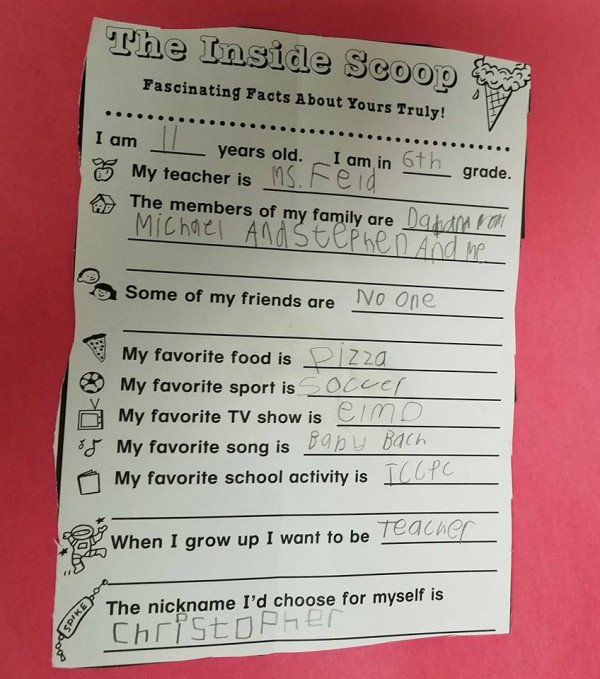 The Inside Scoop
Fascinating Facts About Yours Truly!
I am 11 years old. I am in 6th grade.
My teacher is Ms. Feid
The members of my family are
Michael And Stephen And me
Some of my friends are No one
My favorite food is pizza
My favorite sport is soccer
My favorite TV show is elmo
My favorite song is Baby Bach
My favorite school activity is
When I grow up I want to be Teacher
The nickname I'd choose for myself is
SPIKE Christopher